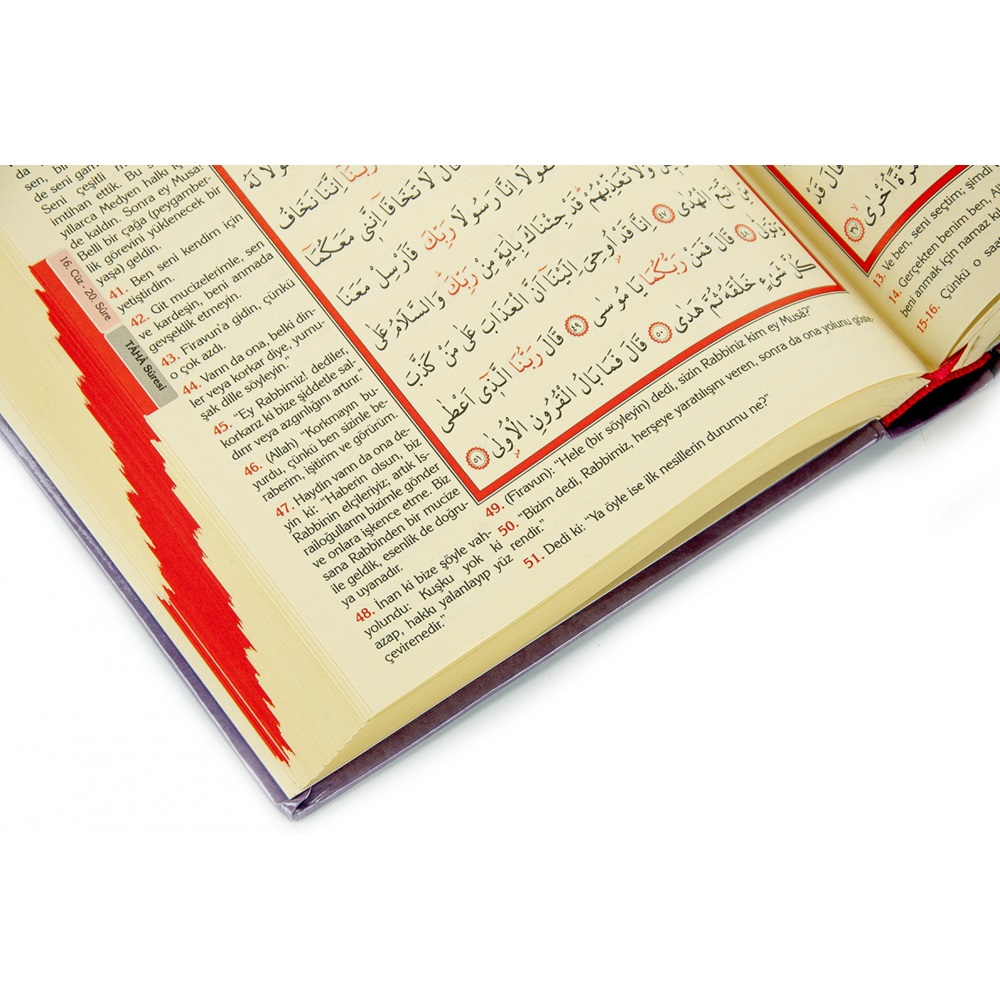 da
sen, bir
de seni gam
Seni çeşitli
imtihan ettik. Bu
yıllarca Medyen halkı iç
de kaldın. Sonra ey Musa!
Belli bir çağa (peygamber-
lik görevini yüklenecek bir
yaşa) geldin.
41. Ben seni kendim için
yetiştirdim.
42. Git mucizelerimle, sen
ve kardeşin, beni anmada
gevşeklik etmeyin.
43. Firavun'a gidin. çünkü
o çok azdı.
44. Varın da ona, belki din-
ler veya korkar diye, yumu-
şak dille söyleyin."
45. "Ey Rabbimiz! dediler,
korkarız ki bize şiddetle sal-
dırır veya azgınlığını artırır."
46. (Allah) "Korkmayın bu-
yurdu, çünkü ben sizinle be-
raberim, işitirim ve görürüm.
47. Haydin varın da ona de-
yin ki: "Haberin olsun, biz
Rabbinin elçileriyiz, artık İs-
railoğullarını bizimle gönder
ve onlara işkence etme. Biz
sana Rabbinden bir mucize
ile geldik, esenlik de doğru-
ya uyanadır.
48. İnan ki bize şöyle vah-
yolundu: Kuşku yok ki
azap, hakkı yalanlayıp yüz
çevirenedir."
16. Cüz - 20. Sûre
TÂHÂ Sûresi
قَوْلًا لَهُ
رَبَّنَٓا اِنَّنَا نَخَافُ
قَالَ لَا تَخَافَٓا اِنَّن۪ي مَعَكُمَٓا
قُولَٓا اِنَّا رَسُولَا رَبِّكَ فَاَرْسِلْ مَعَنَا
وَلَا تُعَذِّبْهُمْ قَدْ جِئْنَاكَ بِاٰيَةٍ مِنْ رَبِّكَ وَالسَّلَامُ عَلٰى
مَنِ اتَّبَعَ الْهُدٰى ٤٧ اِنَّا قَدْ اُو۫حِيَ اِلَيْنَٓا اَنَّ الْعَذَابَ عَلٰى مَنْ كَذَّبَ
وَتَوَلّٰى ٤٨ قَالَ فَمَنْ رَبُّكُمَا يَا مُوسٰى ٤٩ قَالَ رَبُّنَا الَّذ۪ٓي اَعْطٰى
كُلَّ شَيْءٍ خَلْقَهُ ثُمَّ هَدٰى ٥٠ قَالَ فَمَا بَالُ الْقُرُونِ الْاُو۫لٰى ٥١
49. (Firavun): "Hele (bir söyleyin) dedi, sizin Rabbiniz kim ey Musâ?"
50. "Bizim dedi, Rabbimiz, herşeye yaratılışını veren, sonra da ona yolunu göste
51. Dedi ki: "Ya öyle ise ilk nesillerin durumu ne?"
قَالَ قَدْ
مَرَّةً اُخْرٰى ٣٧
13. Ve ben, seni seçtim; şimdi
14. Gerçekten benim ben, A
beni anmak için namaz k
15-16. Çünkü o saa